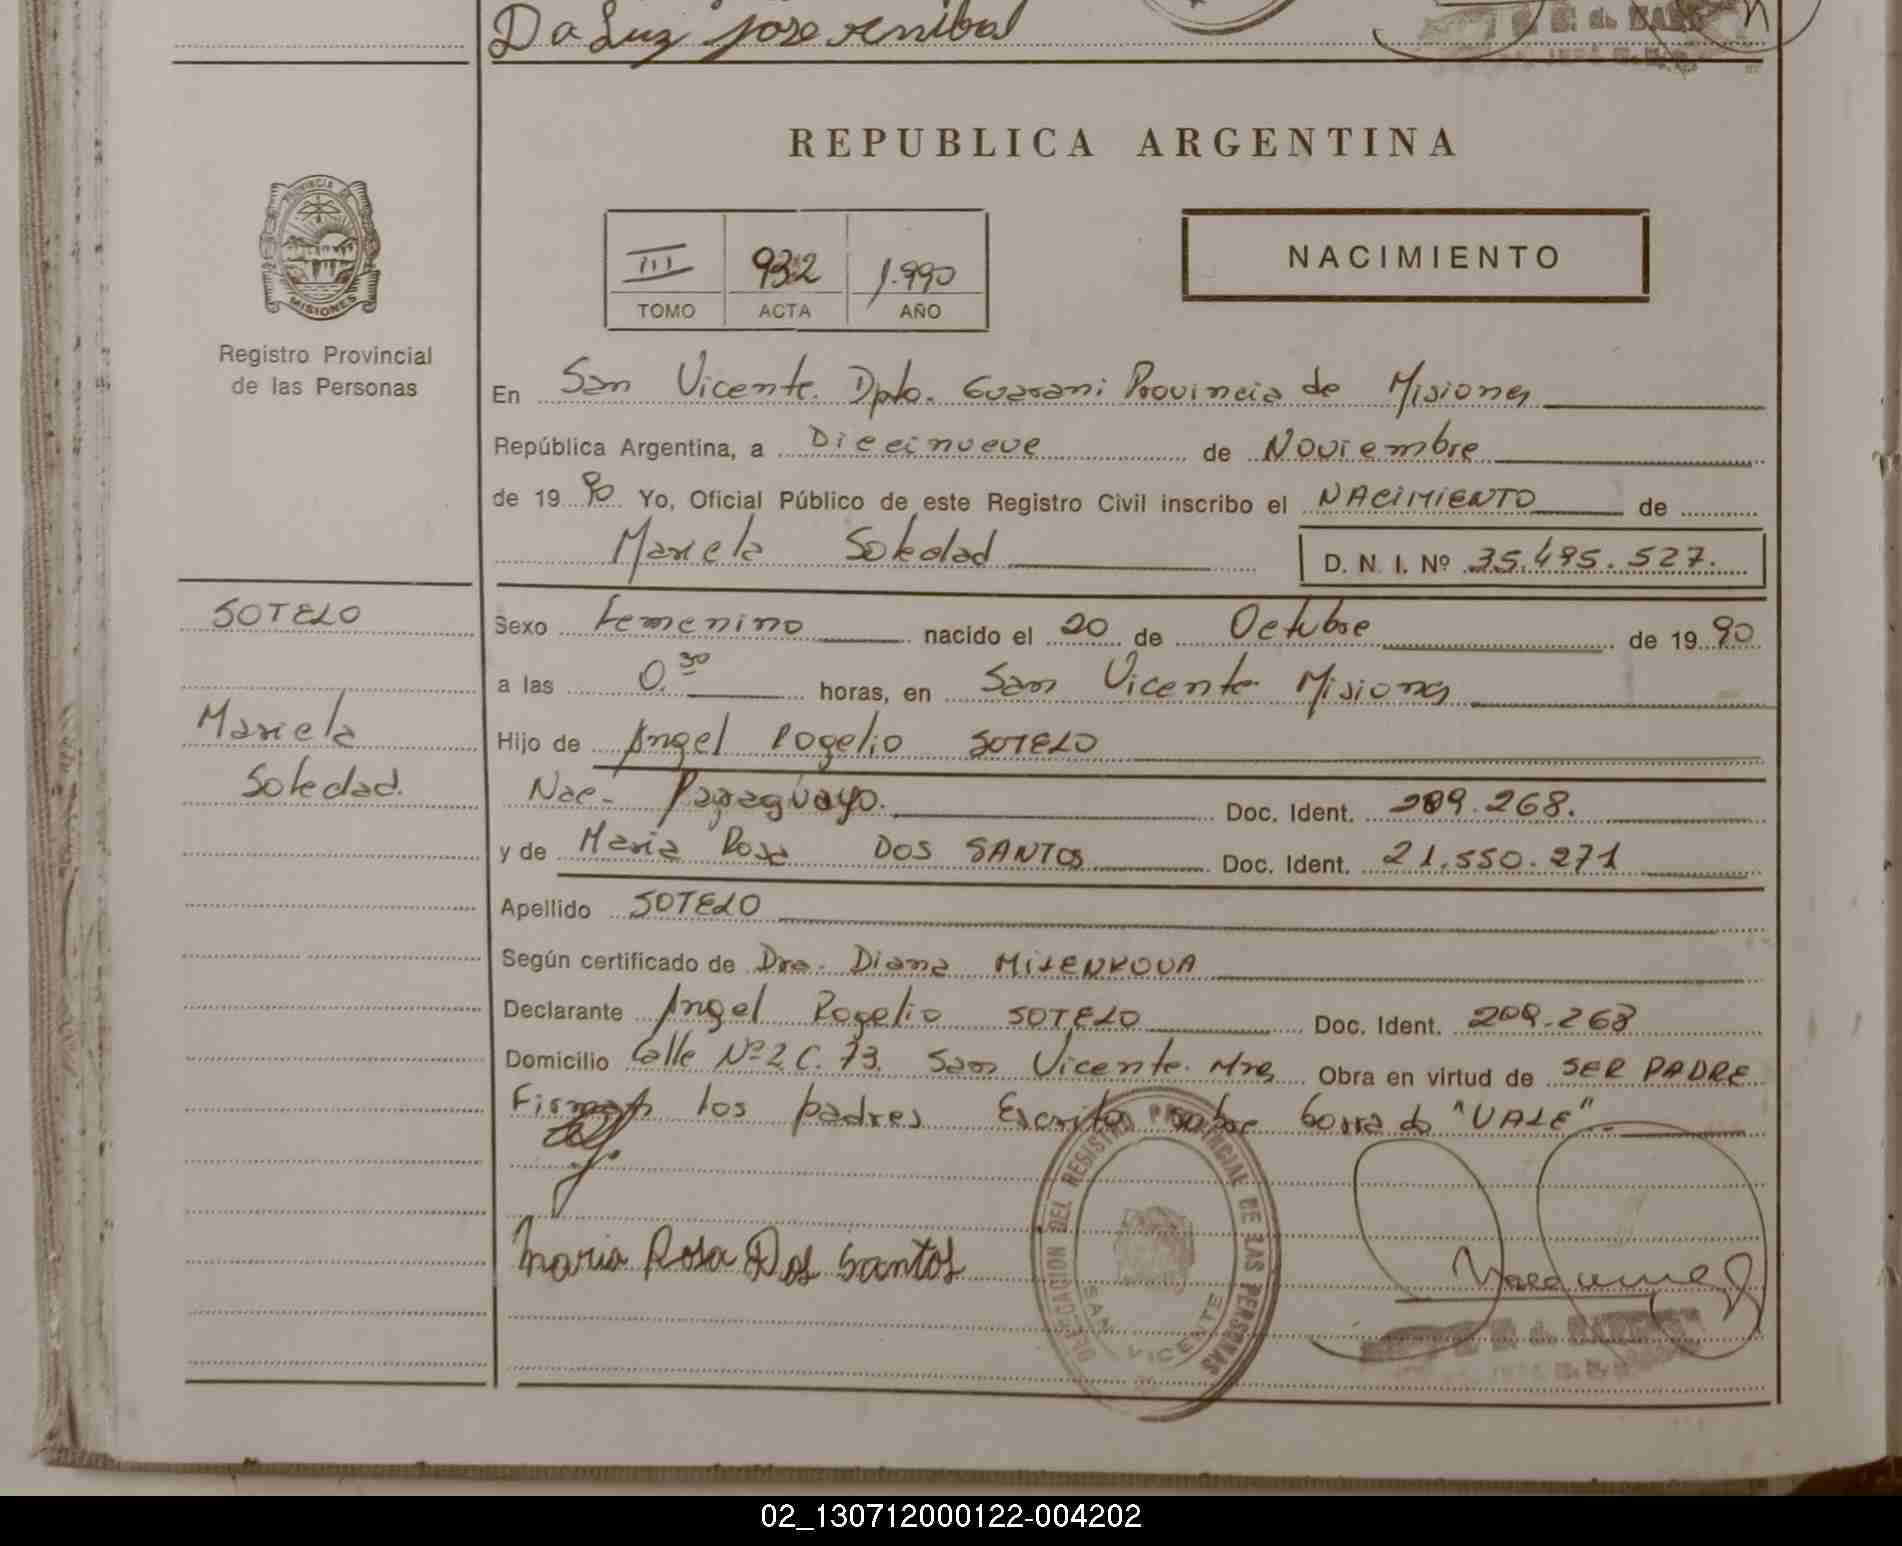 Da Luz Jose Anibal
REPUBLICA ARGENTINA
PROVINCIA DE
MISIONES
Registro Provincial
de las Personas
III 932 1.990
TOMO ACTA AÑO
NACIMIENTO
En San Vicente. Dpto. Guarani Provincia de Misiones
República Argentina, a Diecinueve de Noviembre
de 1990 Yo, Oficial Público de este Registro Civil inscribo el NACIMIENTO de
Mariela Soledad D. N. I. Nº 35.495.527.
SOTELO
Mariela
Soledad.
Sexo Femenino nacido el 20 de Octubre de 1990
a las 0.30 horas, en San Vicente Misiones
Hijo de Angel Rogelio SOTELO
Nac. Paraguayo. Doc. Ident. 209.268.
y de Maria Rosa DOS SANTOS Doc. Ident. 21.550.271
Apellido SOTELO
Según certificado de Dra. Diana MILENKOVA
Declarante Angel Rogelio SOTELO Doc. Ident. 209.268
Domicilio Calle Nº2 C. 73. San Vicente. Mnes Obra en virtud de SER PADRE
Firman los padres Escrito sobre borrado "VALE"
Maria Rosa Dos Santos
DELEGACION DEL REGISTRO PROVINCIAL DE LAS PERSONAS
SAN VICENTE
02_130712000122-004202